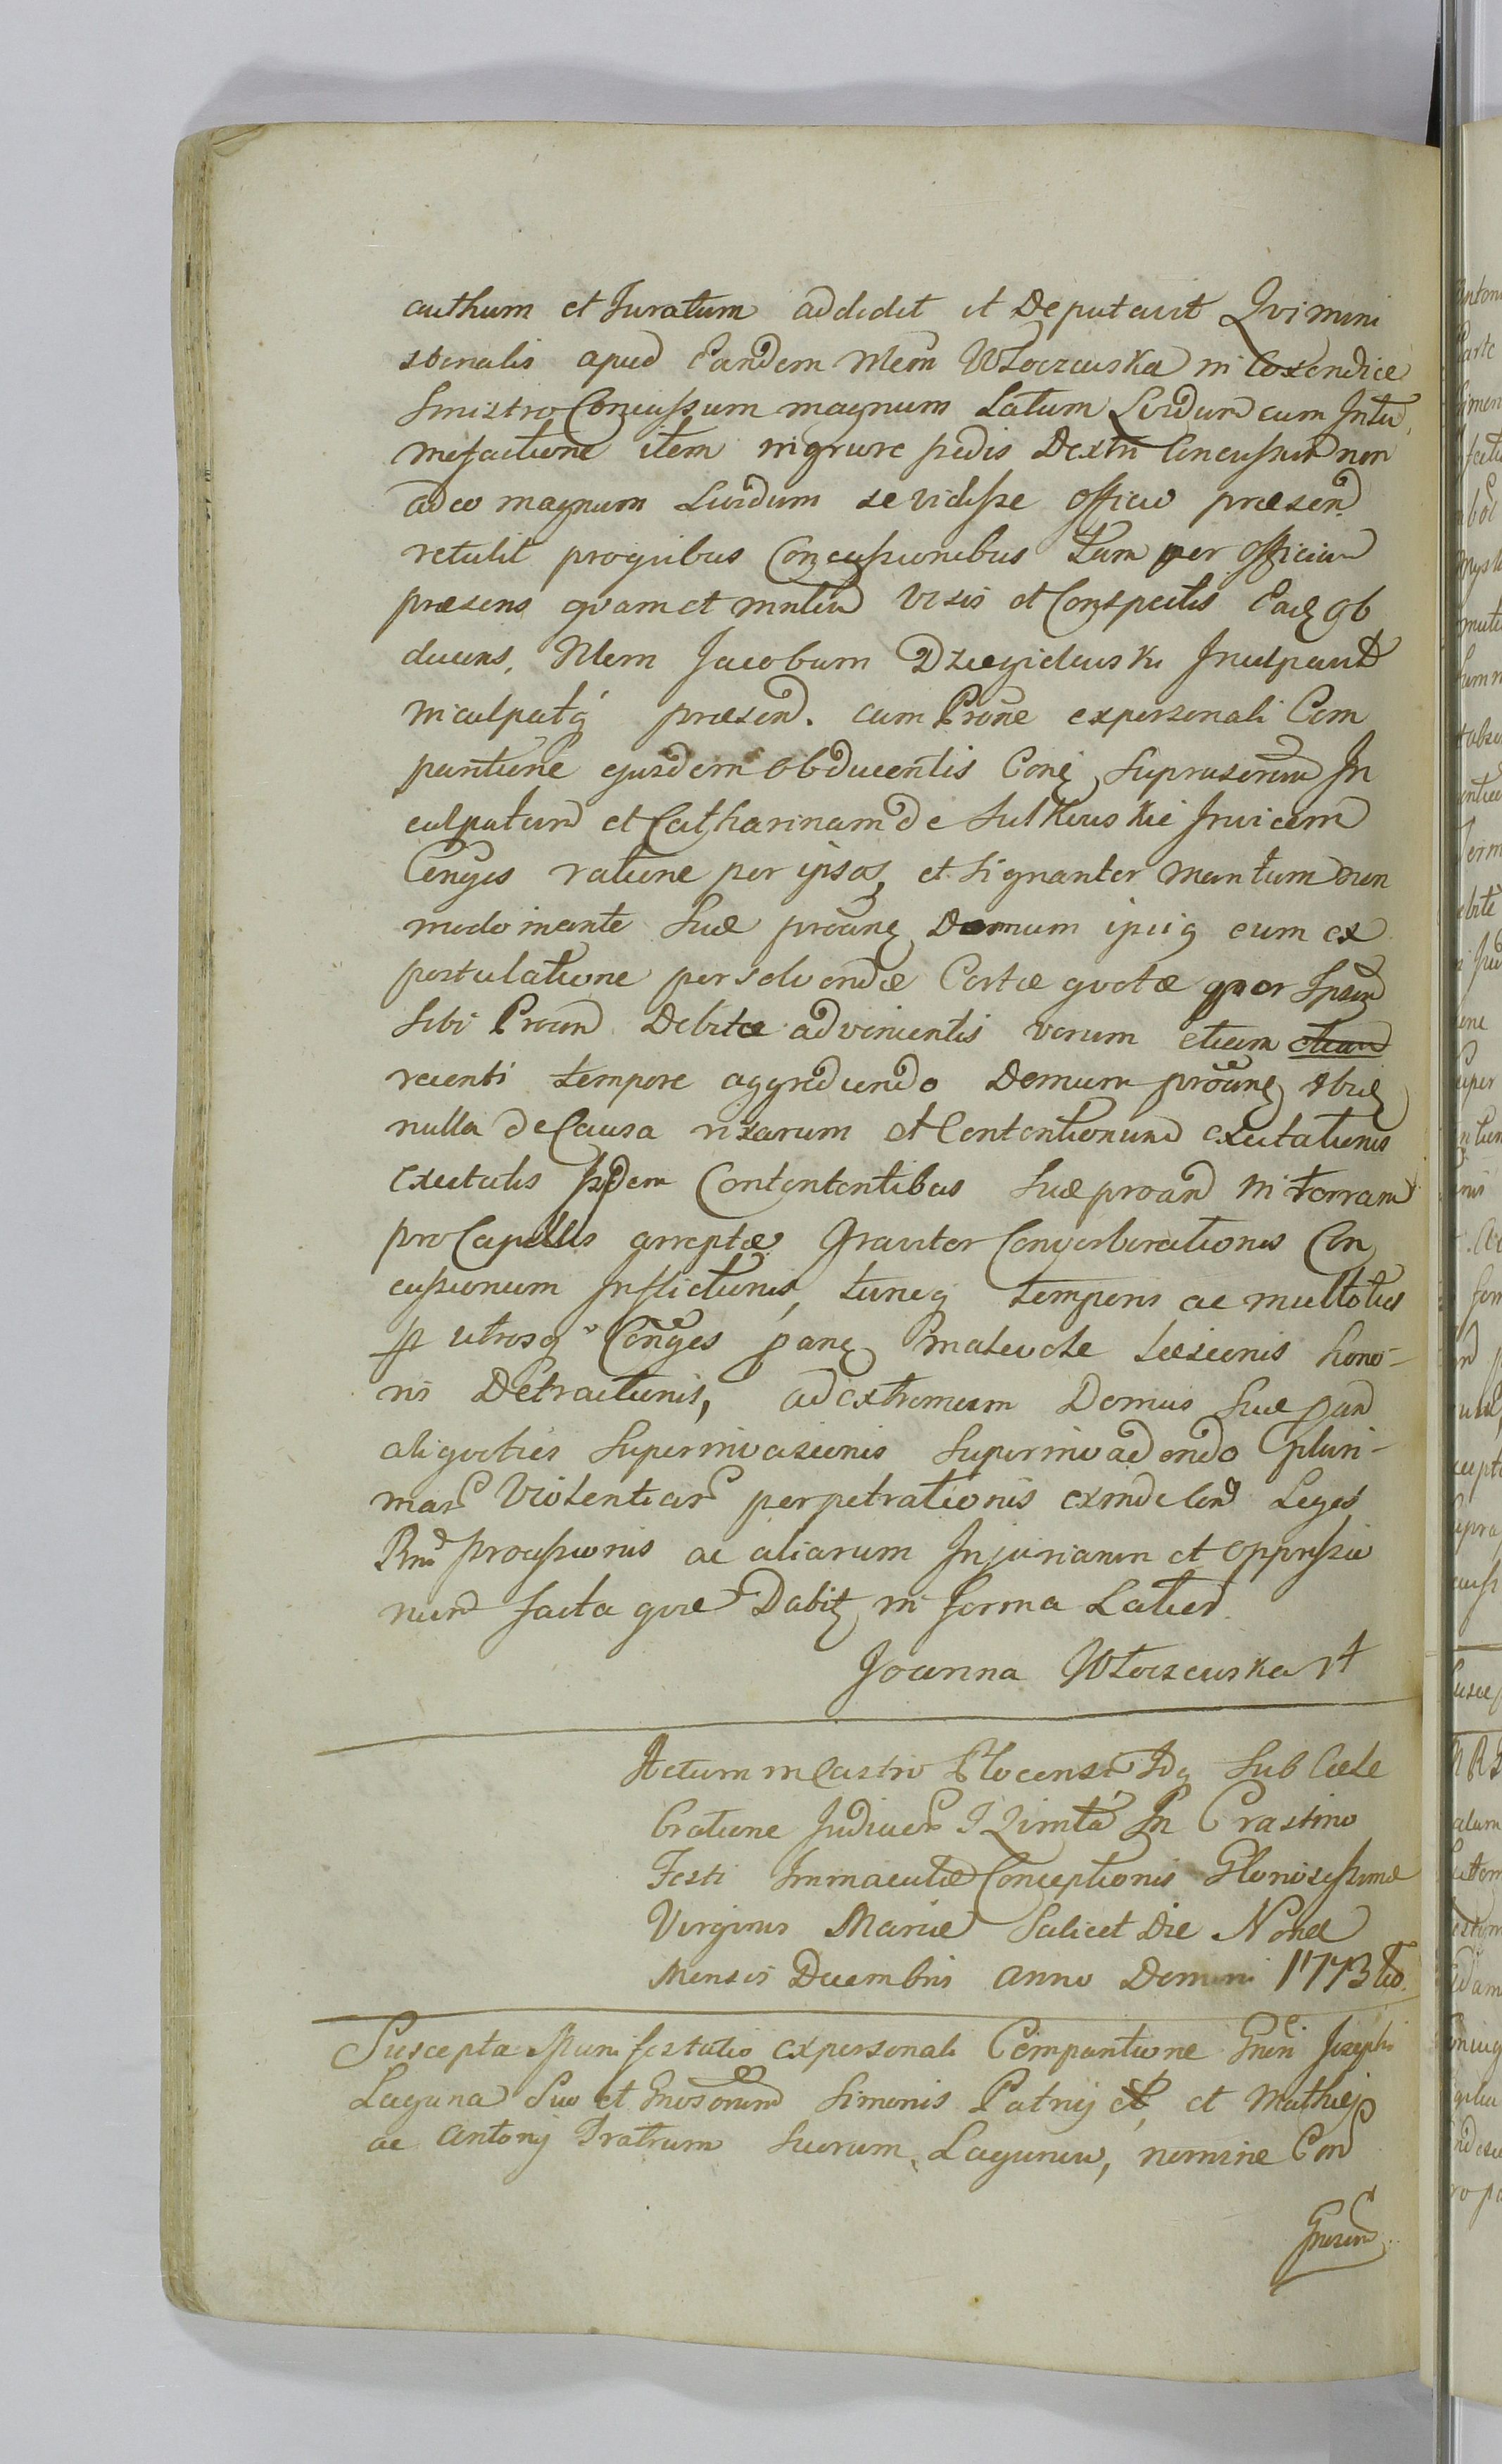 authum et Juratum addidit et Deputavit Qvi mini
sterialis apud Eandem Mem Włoczewska in Coxendice
Sinistro Concussum magnum Latum Lividum cum Intu
mefactione item in grure pedis Dextri Concussum non
adeo magnum Lividum se vidisse officio præsen
retulit pro qvibus Concussionibus tam per officium
præsens qvam et mnlem visis et Conspectis Eadz ob
ducens, Mem Jacobum Dzięgielewski Inculpavit
inculpatq præsen. cum Prone ex personali Com
paritione ejusdem obducentis Conq suprascrum In
culpatum et Catharinam de Sulkowskie Invicem
Conges ratione per ipsos, et signanter Maritum non
modo in ante Suæ proanz Domum ipsiq cum ex
postulatione persolvendæ Certæ qvotæ per Ipsum
Sibi Proan Debitæ advenientis verum etiam etiam
recenti tempore aggrediendo Domum proanz ibiq
nulla de Causa rixarum et Contentionum excitationis
excitatis Ijsdem Contententibus Suæ proan in terram
pro Capillis arreptæ Graviter Converberationis Con
cussionum Inflictionis, tuncq temporis ac multoties
p utrosq Conges panz Malevole Læsionis hono-
ris Detractionis, ad extremum Domus Suæ pan
aliqvoties Superinvasionis Superinvadendo pluri-
mar Violentiar perpetrationis exinde Con Leges
Rni processionis ac aliarum Injuriarum et oppressio
num facta qvæ Dabitz in forma Latiori
Joanna Włoczewska rt
Actum in Castro Plocensi Fdq Sub Cele
bratione Judicior Iqvimta In Crastino
Festi Immacutæ Conceptionis Gloriosissimæ
Virginis Mariæ Scilicet Die Nona
Mensis Decembris anno Domini 1773tio.
Suscepta Manifestatio ex personali Comparitione Gnsi Josephi
Laguna Suo et Gnosorum Simonis Patrij et, et Mathiej
ac Antonij Fratrum Suorum, Lagunow, nomine Con
Gnosum